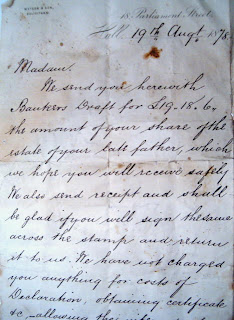 WATSON & SON,
SOLICITORS.
18 Parliament Street,
Hull 19th Augt 1878
Madam.
We send you herewith
Bankers Draft for £19.18.6,
the amount of your share of the
estate of your late father, which
we hope you will receive safely
We also send receipt and shall
be glad if you will sign the same
across the stamp and return
it to us. We have not charged
you anything for costs of
Declaration, obtaining certificate
&c. allowing the